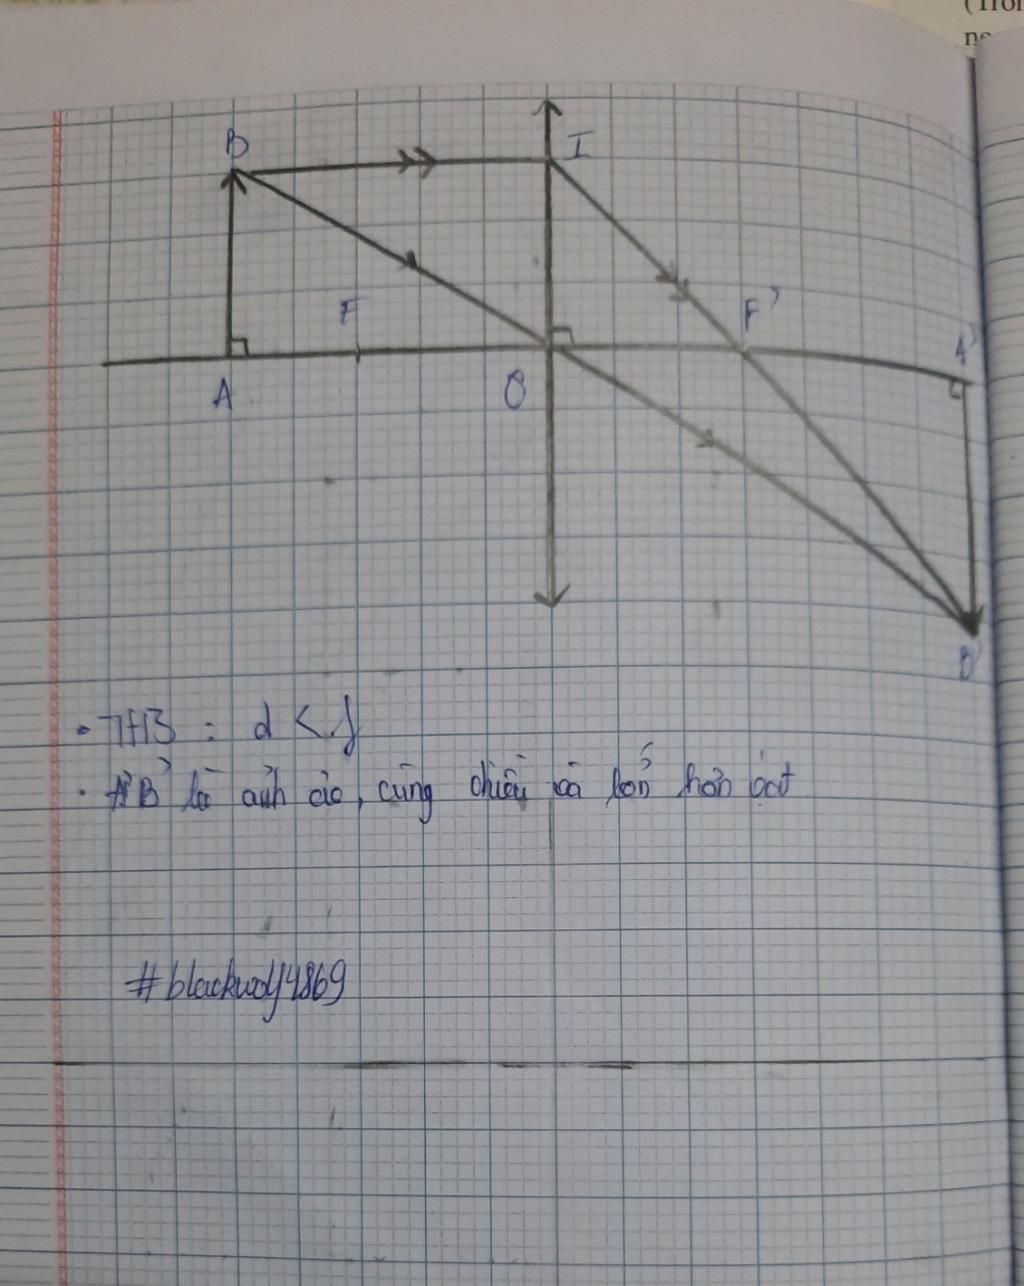 (Tron
B
I
F
F'
A'
A
O
B'
• TH3 : d < f
• A'B' là ảnh ảo, cùng chiều và lớn hơn vật
#blackwolf4869